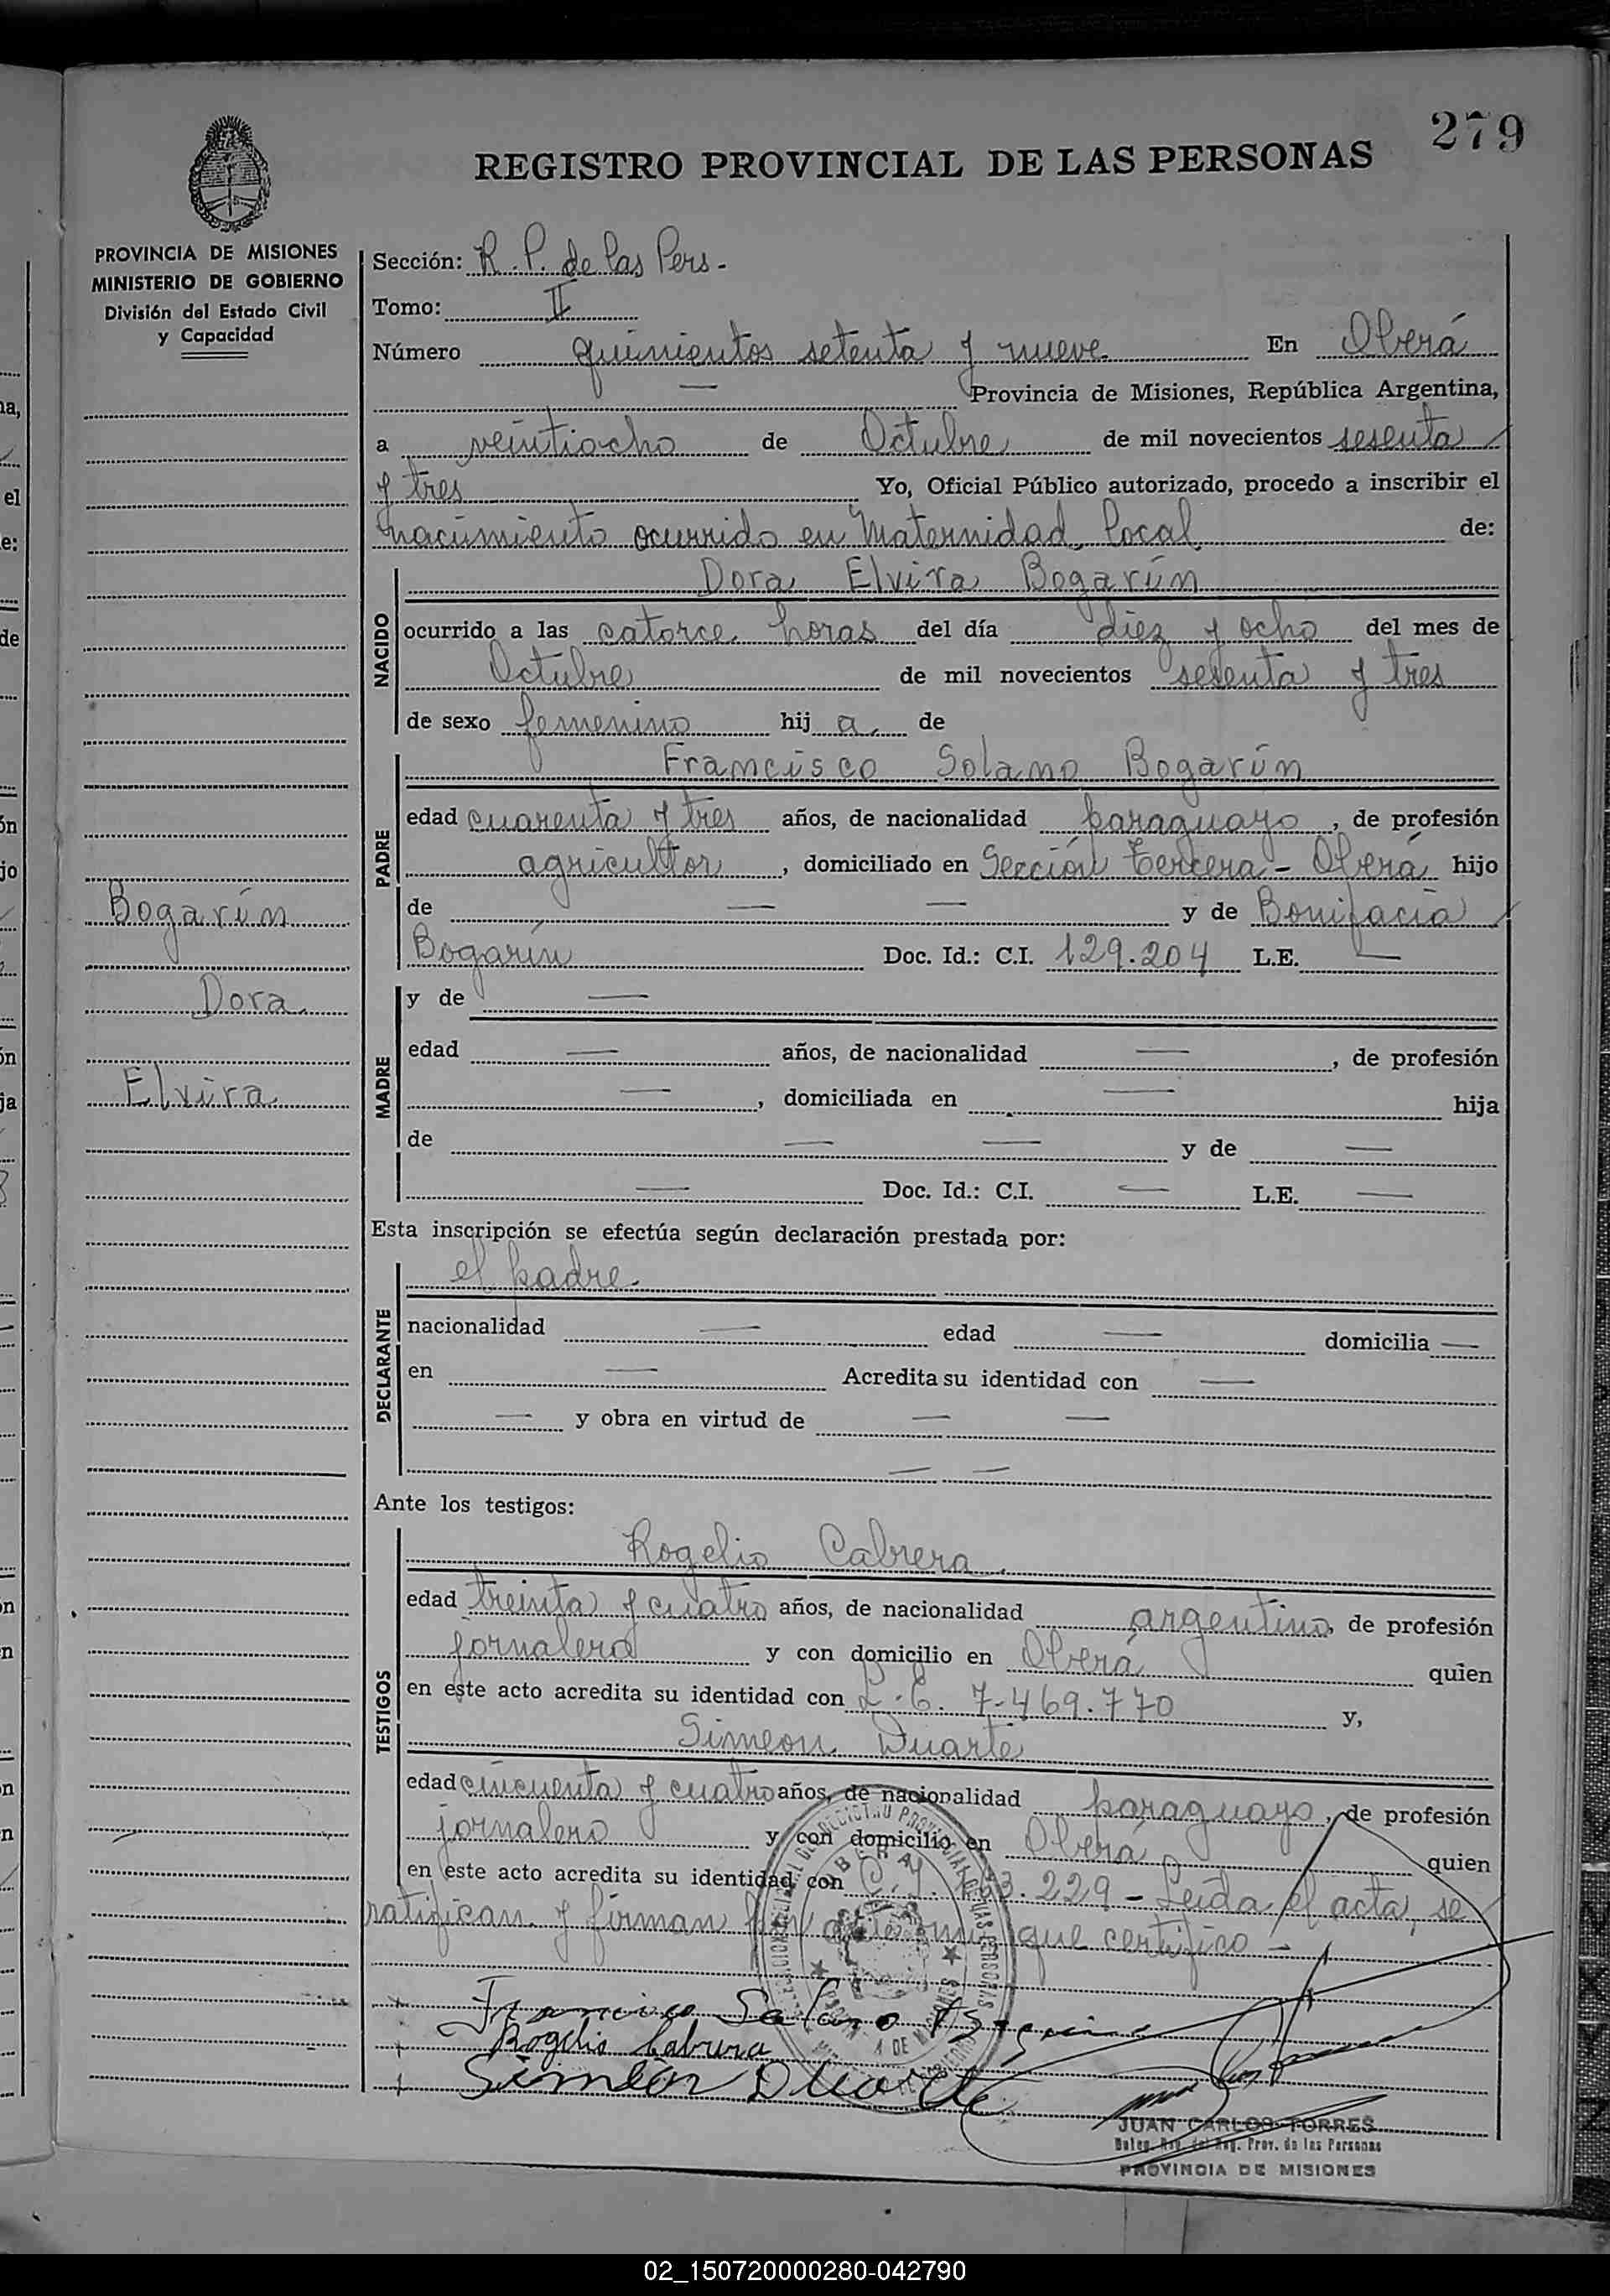 279
REGISTRO PROVINCIAL DE LAS PERSONAS
PROVINCIA DE MISIONES
MINISTERIO DE GOBIERNO
División del Estado Civil
y Capacidad
Sección: R. P. de las Pers.
Tomo: II
Número quinientos setenta y nueve. En Oberá
— Provincia de Misiones, República Argentina,
a veintiocho de Octubre de mil novecientos sesenta
y tres Yo, Oficial Público autorizado, procedo a inscribir el
nacimiento ocurrido en Maternidad Local de:
NACIDO
Dora Elvira Bogarín
ocurrido a las catorce horas del día diez y ocho del mes de
Octubre de mil novecientos sesenta y tres
de sexo femenino hij a. de
PADRE
Francisco Solano Bogarín
edad cuarenta y tres años, de nacionalidad paraguayo, de profesión
agricultor, domiciliado en Sección Tercera - Oberá hijo
de — — y de Bonifacia
Bogarín Doc. Id.: C.I. 129.204 L.E. —
Bogarín
Dora
Elvira
MADRE
y de —
edad — años, de nacionalidad —, de profesión
—, domiciliada en — hija
de — — y de —
— Doc. Id.: C.I. — L.E. —
Esta inscripción se efectúa según declaración prestada por:
DECLARANTE
el padre.
nacionalidad — edad — domicilia —
en — Acredita su identidad con —
— y obra en virtud de — —
— —
Ante los testigos:
TESTIGOS
Rogelio Cabrera.
edad treinta y cuatro años, de nacionalidad argentino, de profesión
jornalero y con domicilio en Oberá quien
en este acto acredita su identidad con L.E. 7.469.770 y,
Simeon Duarte
edad cincuenta y cuatro años, de nacionalidad paraguayo, de profesión
jornalero y con domicilio en Oberá quien
en este acto acredita su identidad con C.I. 229 - Leída el acta, se
ratifican y firman que certifico -
Francisco Solano Bogarin
Rogelio Cabrera
Simeón Duarte
JUAN CARLOS TORRES
Reg. Prov. de las Personas
PROVINCIA DE MISIONES
02_150720000280-042790